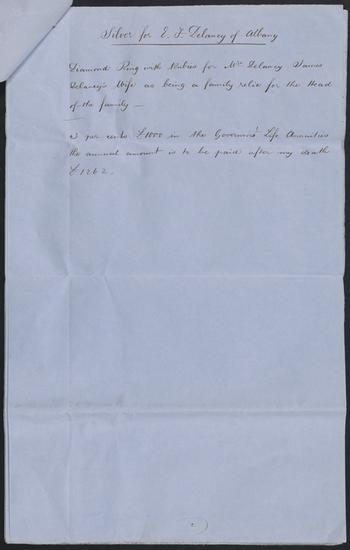 Silver for E. F. Delancy of Albany
Diamond Ring with Rubies for Mrs. Delancey James
Delancey's Wife as being a family relic for the Head
of the family —
3 per cents £1000 in the Governmt Life Annuities
the annual amount is to be paid after my death
£1262.